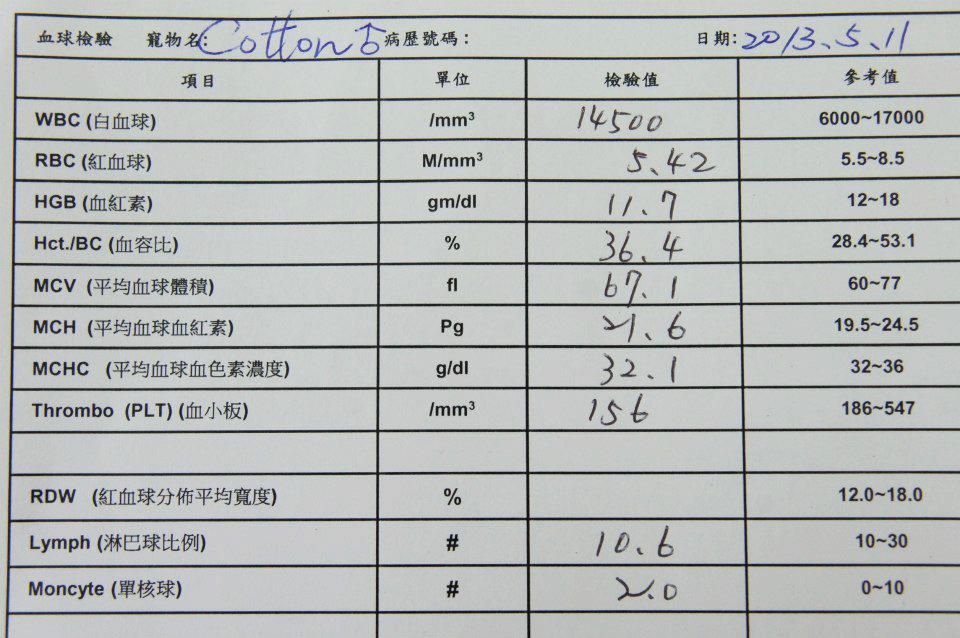 血球檢驗 寵物名: Cotton 病歷號碼: 日期: 2013.5.11
項目 單位 檢驗值 參考值
WBC (白血球) /mm³ 14500 6000~17000
RBC (紅血球) M/mm³ 5.42 5.5~8.5
HGB (血紅素) gm/dl 11.7 12~18
Hct./BC (血容比) % 36.4 28.4~53.1
MCV (平均血球體積) fl 67.1 60~77
MCH (平均血球血紅素) Pg 21.6 19.5~24.5
MCHC (平均血球血色素濃度) g/dl 32.1 32~36
Thrombo (PLT) (血小板) /mm³ 156 186~547
RDW (紅血球分佈平均寬度) % 12.0~18.0
Lymph (淋巴球比例) # 10.6 10~30
Moncyte (單核球) # 2.0 0~10